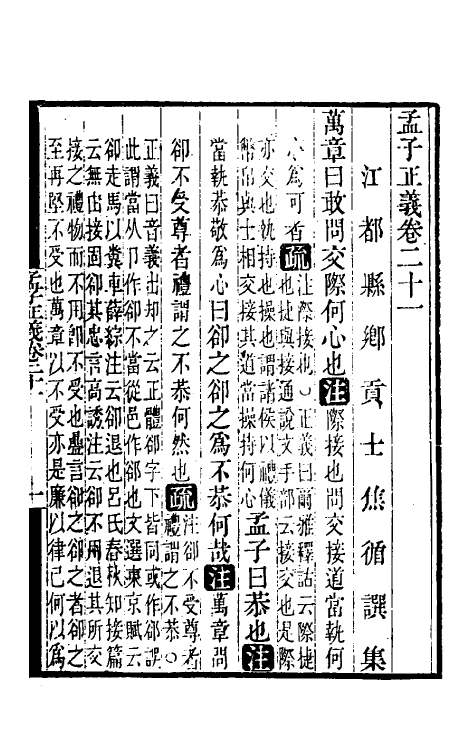 孟子正義卷二十一
江都縣鄉貢士焦循譔集
萬章曰敢問交際何心也注際接也問交接道當執何
心爲可者疏注際接也○正義曰爾雅釋詁云際捷
也捷與接通說文手部云接交也是際
亦交也執持也操也謂諸侯以禮儀
幣帛與士相交接其道當操持何心孟子曰恭也注
當執恭敬爲心曰卻之卻之爲不恭何哉注萬章問
卻不受尊者禮謂之不恭何然也疏注卻不受尊者
禮謂之不恭○
正義曰音義出却之云正體卻字下皆同或作郤誤
此謂當从卩作卻不當從邑作郤也文選東京賦云
卻走馬以糞車薛綜注云卻退也呂氏春秋知接篇
云無由接固卻其忠言高誘注云卻不用退其所交
接之禮物而不用卽不受也疊言卻之卻之者卻之
至再堅不受也萬章以不受亦是廉以律己何以爲
孟子正義卷二十一
一